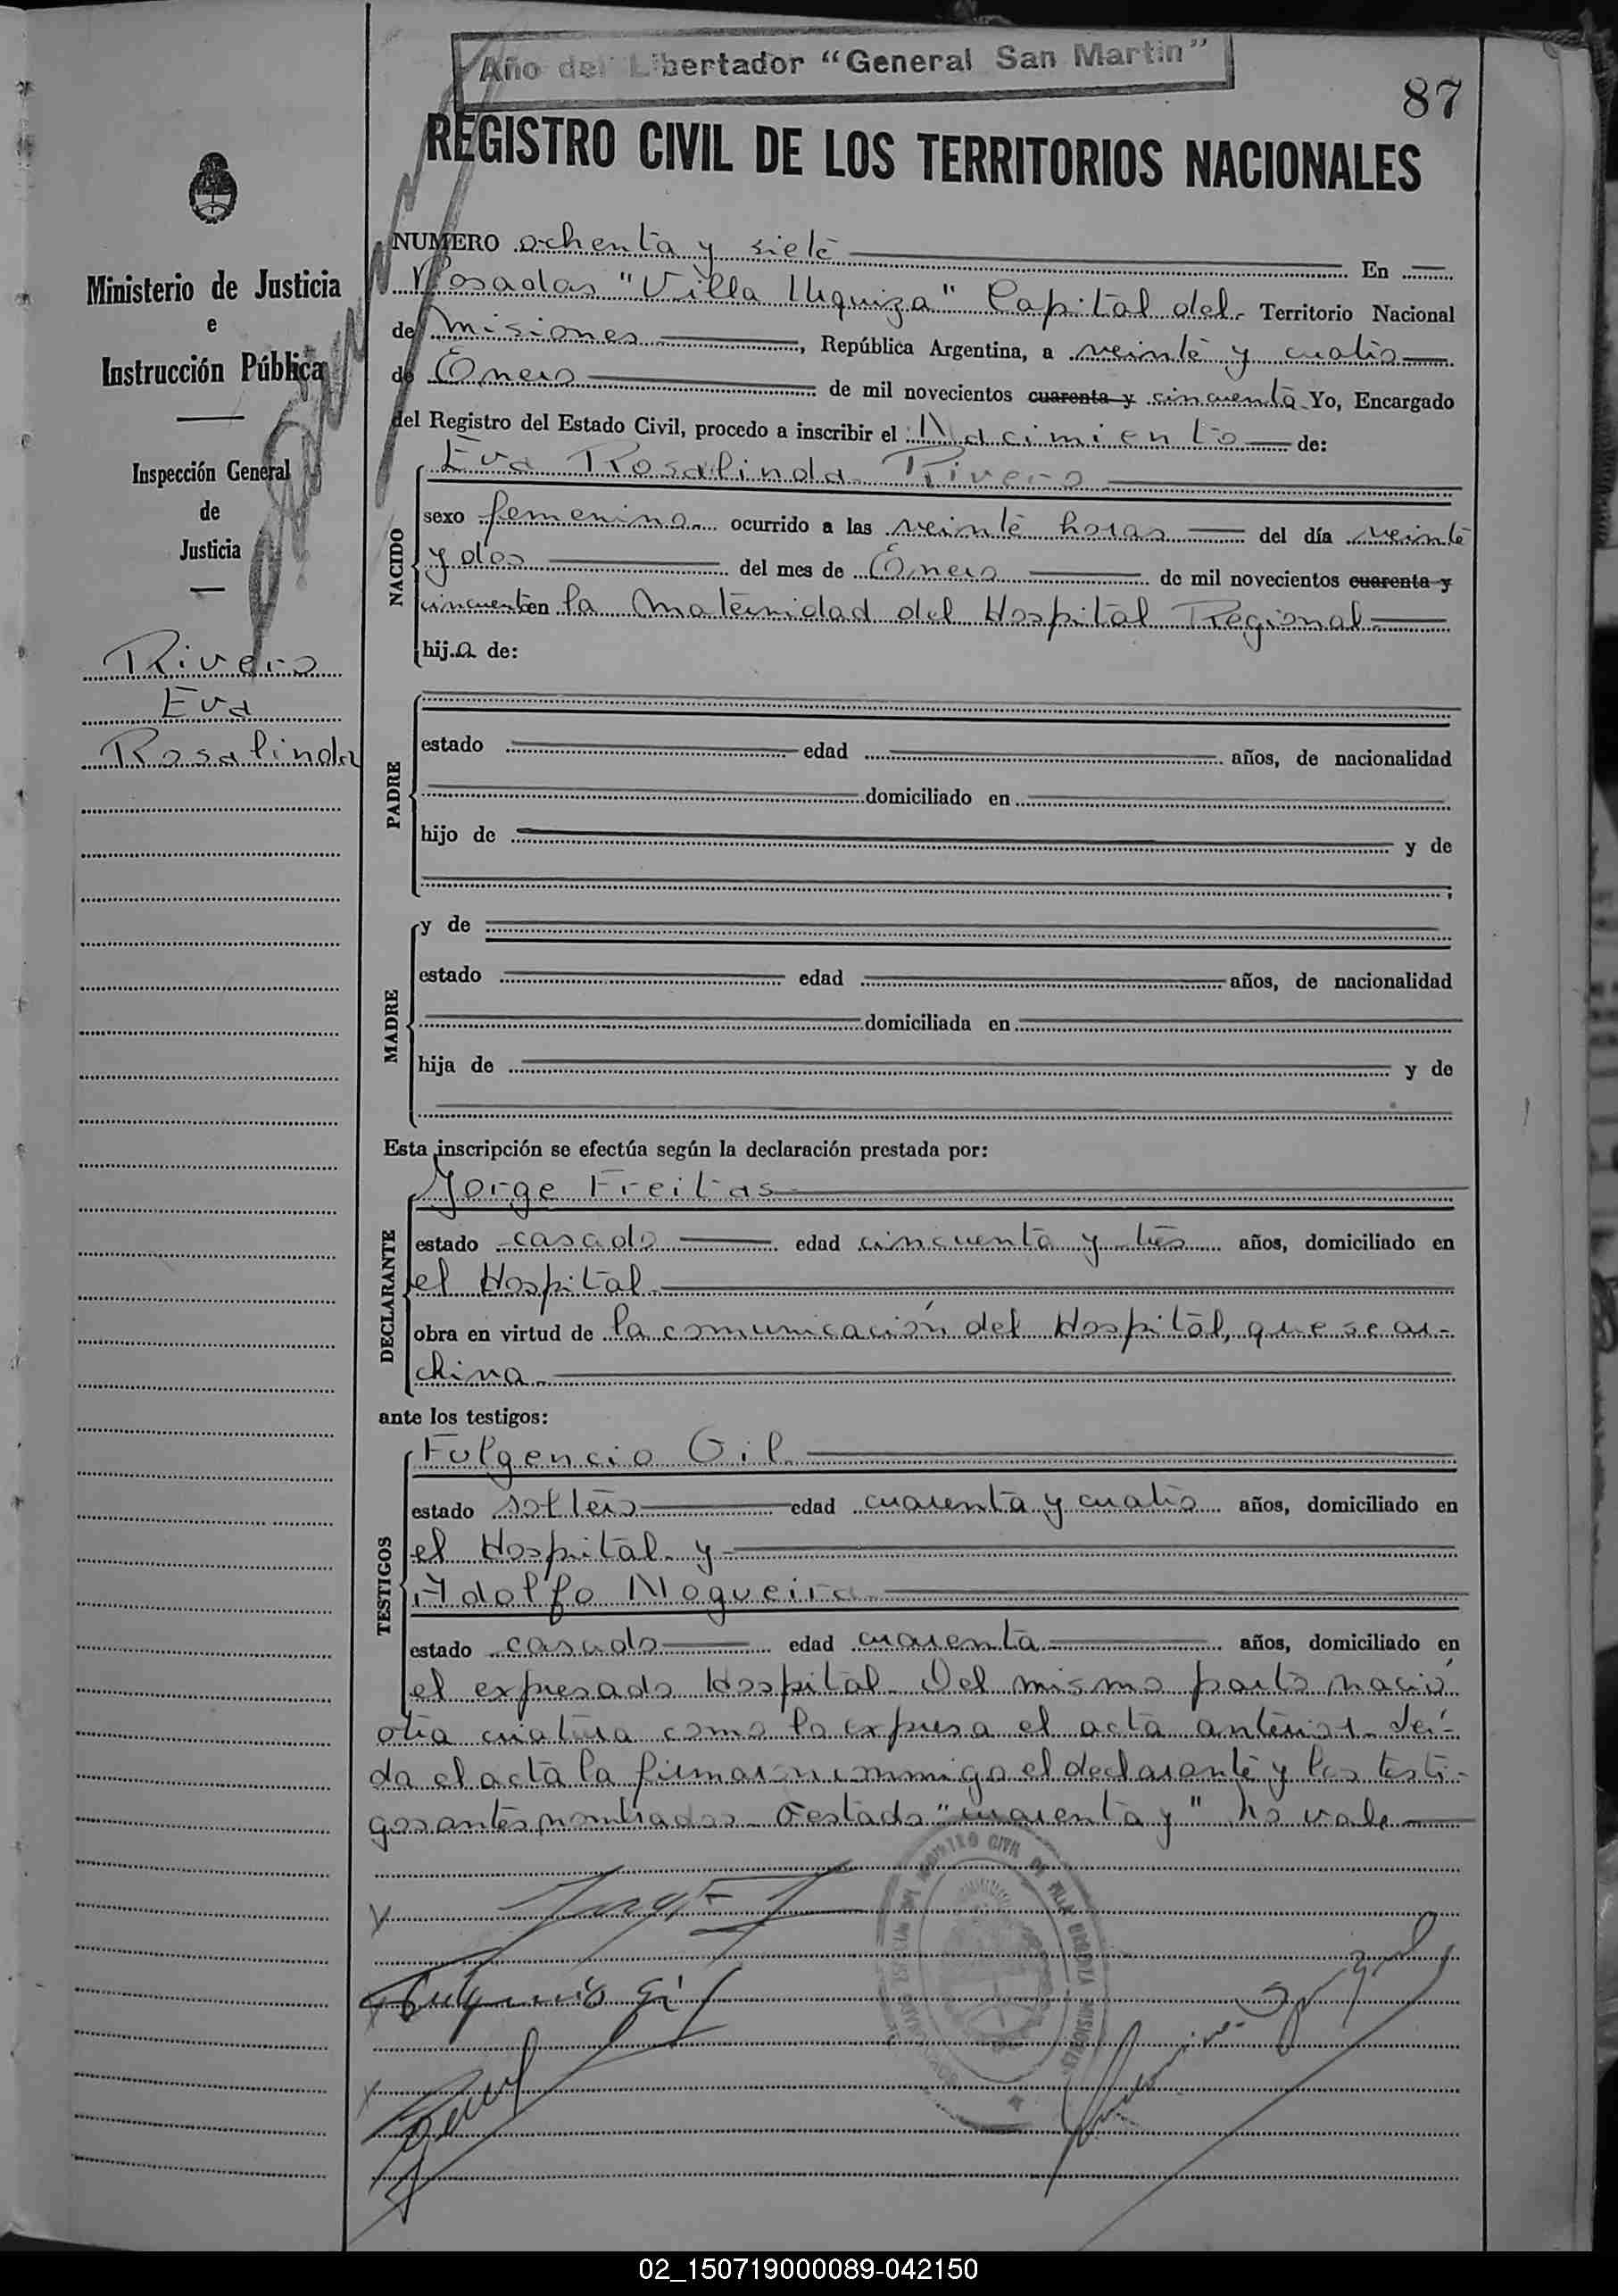 Año del Libertador “General San Martin”
87
REGISTRO CIVIL DE LOS TERRITORIOS NACIONALES
Ministerio de Justicia
e
Instrucción Pública
Inspección General
de
Justicia
Rivero
Eva
Rosalinda
NUMERO ochenta y siete En
Posadas "Villa Urquiza" Capital del Territorio Nacional
de Misiones, República Argentina, a veinte y cuatro
de Enero de mil novecientos cuarenta y cincuenta Yo, Encargado
del Registro del Estado Civil, procedo a inscribir el Nacimiento de:
NACIDO
Eva Rosalinda Rivero
sexo femenino ocurrido a las veinte horas del día veinte
y dos del mes de Enero de mil novecientos cuarenta y
cincuenta en la Maternidad del Hospital Regional
hija de:
PADRE
estado edad años, de nacionalidad
domiciliado en
hijo de y de
MADRE
y de
estado edad años, de nacionalidad
domiciliada en
hija de y de
Esta inscripción se efectúa según la declaración prestada por:
DECLARANTE
Jorge Freitas
estado casado edad cincuenta y tres años, domiciliado en
el Hospital
obra en virtud de la comunicación del Hospital, que se ar-
chiva
ante los testigos:
TESTIGOS
Fulgencio Gil
estado soltero edad cuarenta y cuatro años, domiciliado en
el Hospital y
Adolfo Nogueira
estado casado edad cuarenta años, domiciliado en
el expresado Hospital. Del mismo parto nació
otra criatura como lo expresa el acta anterior. Leí-
da el acta la firmaron conmigo el declarante y los testi-
gos antes nombrados. Testado "cuarenta y" no vale
Fulgencio Gil
02_150719000089-042150